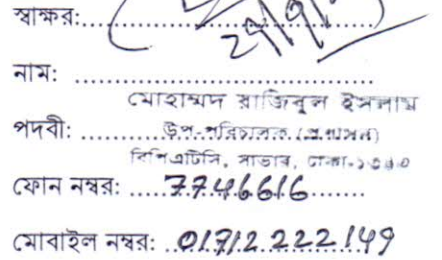 স্বাক্ষর:
নাম:
মোহাম্মদ রাজিবুল ইসলাম
পদবী: উপ-পরিচালক (প্রশাসন)
বিপিএটিসি, সাভার, ঢাকা-১৩৪৩
ফোন নম্বর: 7746616
মোবাইল নম্বর: 01712222149